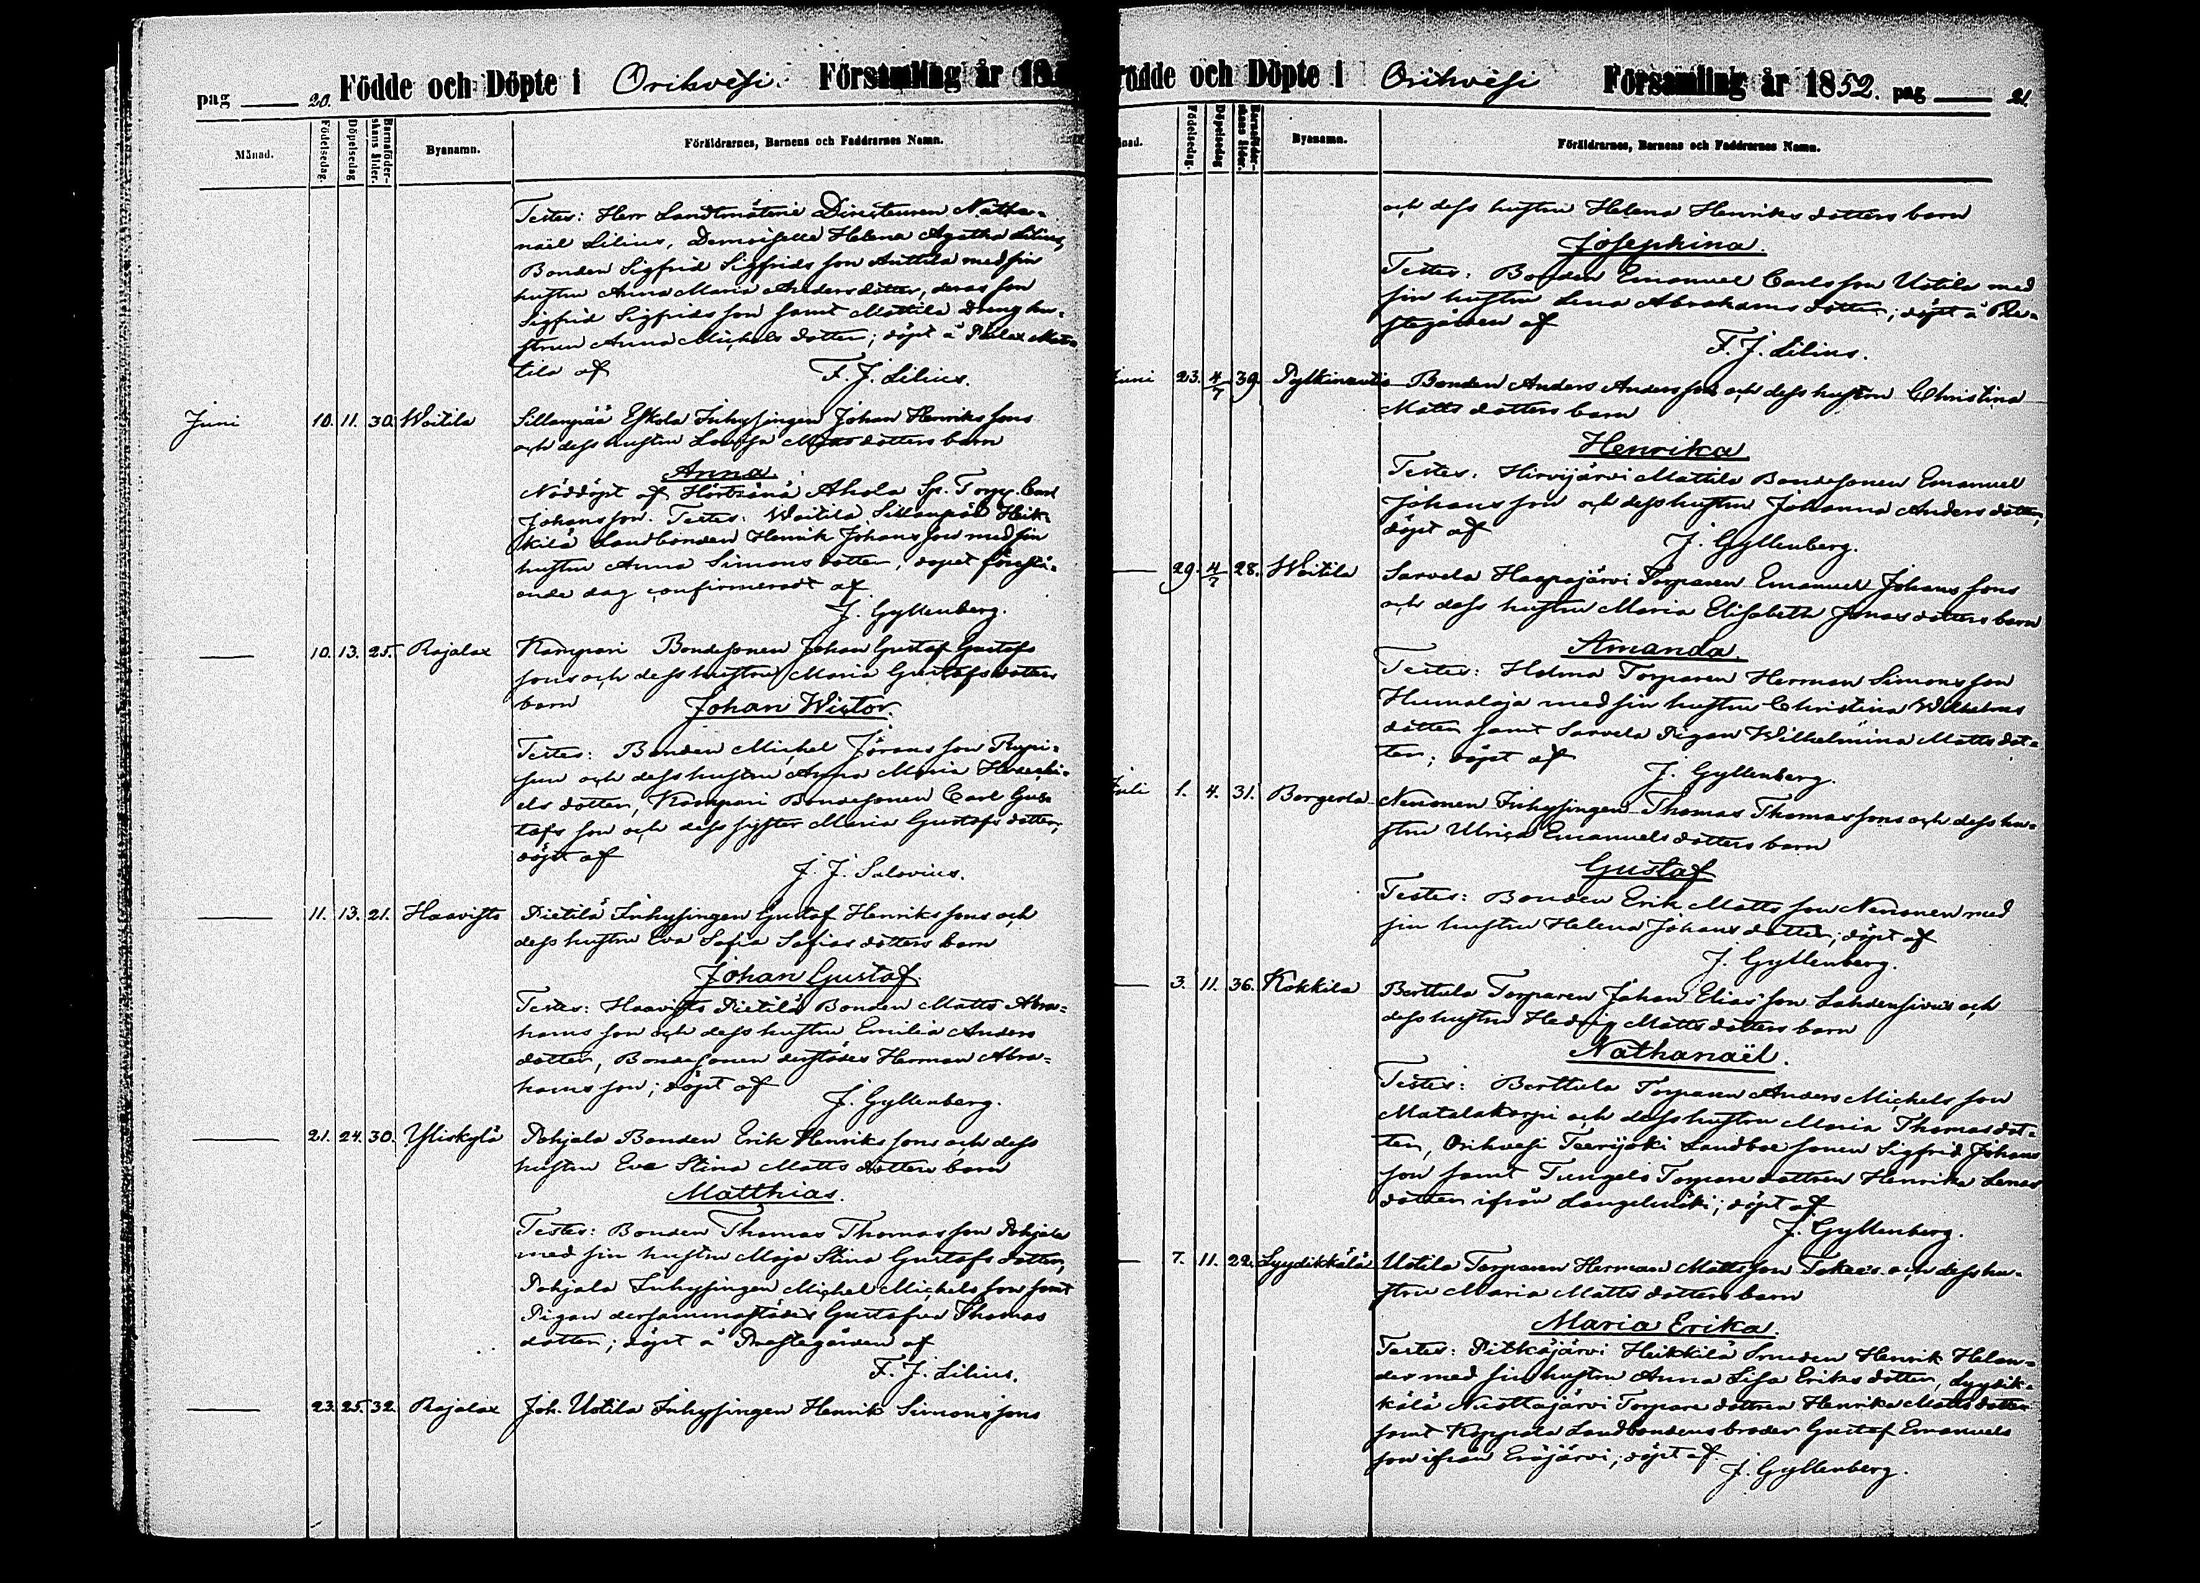 pag 20. Födde och Döpte i Orihvesi. Församling år 18
Månad. Födelsedag. Döpelsedag Barnaföderskans ålder. Byanamn. Föräldrarnes, Barnens och Faddrarnes Namn.
Testes: Herr Landtmäterie Directeuren Natha-
naël Lilius, Demoiselle Helena Agatha Lilius,
Bonden Sigfrid Sigfrids son Anttila med sin
hustru Anna Maria Anders dotter, deras son
Sigfrid Sigfrids son samt Mattila Dreng hu-
strun Anna Michels dotter; döpt å
tila af F. J. Lilius.
Juni 10. 11. 30. Woitila Sillanpää Eskola Inhysingen Johan Henriks sons
och dess hustru Lovisa Matts dotters barn
Anna.
Nöddöpt af Ahola Sp. Torp. Carl
Johansson. Testes: Woitila Sillanpää Heik-
kilä Landbonden Henrik Johans son med sin
hustru Anna Simons dotter, dopet förestå-
ende dag confirmeradt af
J. Gyllenberg.
— 10. 13. 25. Rajalax Kampari Bondesonen Johan Gustaf Gustafs
sons och dess hustru Maria Gustafs dotters
barn Johan Wictor.
Testes: Bonden Michel Jörans son
och dess hustru Anna Maria Heseki-
els dotter, Kampari Bondesonen Carl Gus-
tafs son och dess syster Maria Gustafs dotter;
döpt af
J. J. Salovius.
— 11. 13. 21. Haavisto Pietilä Inhysingen Gustaf Henriks sons och
dess hustru Eva Sofia Sofias dotters barn
Johan Gustaf.
Testes: Haavisto Pietilä Bonden Matts Abra-
hams son och dess hustru Emilia Anders
dotter, Bondesonen derstädes Herman Abra-
hams son; döpt af
J. Gyllenberg.
— 21. 24. 30. Yliskylä Pohjala Bonden Erik Henriks sons och dess
hustru Eva Stina Matts dotters barn
Matthias.
Testes: Bonden Thomas Thomas son Pohjala
med sin hustru Maja Stina Gustafs dotter,
Pohjala Inhysingen Michel Michels son samt
Pigan dersammastädes Gustafva Thomas
dotter; döpt å Prestegården af
F. J. Lilius.
— 23. 25. 32. Rajalax Joh. Uotila Inhysingen Henrik Simons sons
Födde och Döpte i Orihvesi Församling år 1852. pag 21.
Månad. Födelsedag. Döpelsedag Barnaföderskans ålder. Byanamn. Föräldrarnes, Barnens och Faddrarnes Namn.
och dess hustru Helena Henriks dotters barn
Josephina.
Testes: Bonden Emanuel Carls son Uotila med
sin hustru Lena Abrahams dotter; döpt å Pre-
stegården af
F. J. Lilius.
Juni 23. 4/7 39. Bonden Anders Anders sons och dess hustru Christina
Matts dotters barn
Henrika
Testes: Hirvijärvi Mattila Bondesonen Emanuel
Johans son och dess hustru Johanna Anders dotter,
döpt af
J. Gyllenberg.
— 29. 4/7 28. Woitila Sarvela Haapajärvi Torparen Emanuel Johans sons
och dess hustru Maria Elisabeth Jonas dotters barn
Amanda.
Testes: Holma Torparen Herman Simons son
Humaloja med sin hustru Christina Wilhelms
dotter samt Sarvela Pigan Wilhelmina Matts dot-
ter; döpt af
J. Gyllenberg.
Juli 1. 4. 31. Bergerla Nenonen Inhysingen Thomas Thomas sons och dess hu-
stru Ulrica Emanuels dotters barn
Gustaf
Testes: Bonden Erik Matts son Nenonen med
sin hustru Helena Johans dotter; döpt af
J. Gyllenberg.
— 3. 11. 36. Kokkila Berttula Torparen Johan Elias son Lahdensivus och
dess hustru Hedvig Matts dotters barn
Nathanaël.
Testes: Berttula Torparen Anders Michels son
Matalakorpi och dess hustru Maria Thomas dot-
ter, Orihvesi Teerijoki Landboe sonen Sigfrid Johans
son samt Torpare dottren Henrika Lenas
dotter ifrån Längelmäki; döpt af
J. Gyllenberg.
— 7. 11. 22. Lyydikkälä Uotila Torparen Herman Matts son och dess hu-
stru Maria Matts dotters barn
Maria Erika.
Testes: Pitkäjärvi Heikkilä Smeden Henrik Helan-
der med sin hustru Anna Lisa Eriks dotter, Lyydik-
kälä Nuottajärvi Torpare dottren Henrika Matts dotter
samt Koppala Landbondens broder Gustaf Emanuels
son ifrån Eräjärvi; döpt af
J. Gyllenberg.